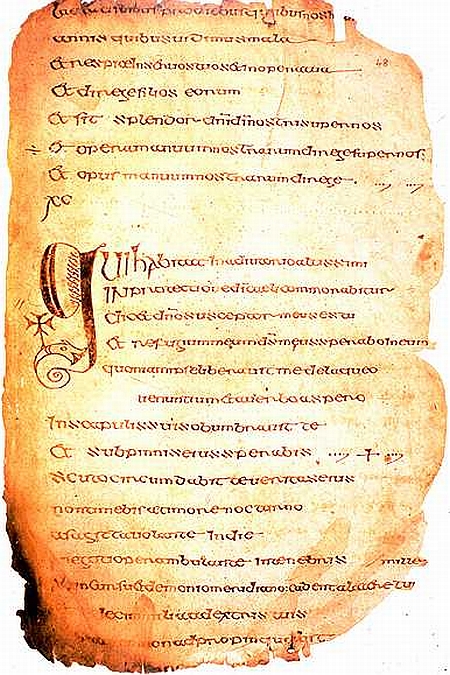 pro diebus quibus nos
annis quibus uidimus mala
Et respice in seruos tuos et in opera tua
48
Et dirige filios eorum
Et sit splendor dni di nostri super nos
Et opera manuum nostrarum dirige super nos
Et opus manuum nostrarum dirige
xc
Qui habitat in adiutorio altissimi
IN protectione di caeli commorabitur
dicet dno susceptor meus es tu
Et refugium meum ds meus sperabo in eum
quoniam ipse liberauit me de laqueo
uenantium et a uerbo aspero
In scapulis suis obumbrauit te
Et sub pinnis eius sperabis
scuto circumdabit te ueritas eius
non timebis a timore nocturno
a sagita uolante in die
negotio perambulante in tenebris mille
ab incursu et demonio meridiano cadent a latere tuo
decem milia a dextris tuis
non adpropinquabit